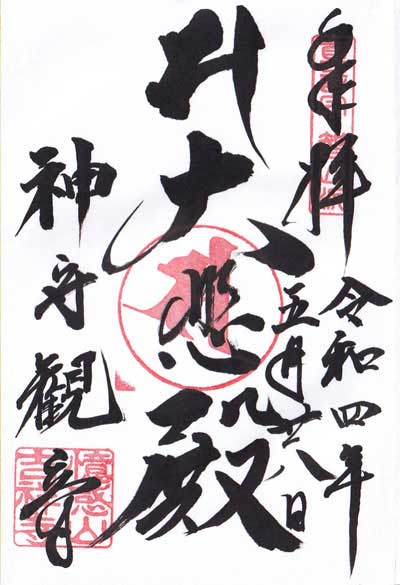 奉拝
令和四年
五月廿八日
大悲殿
神守觀音